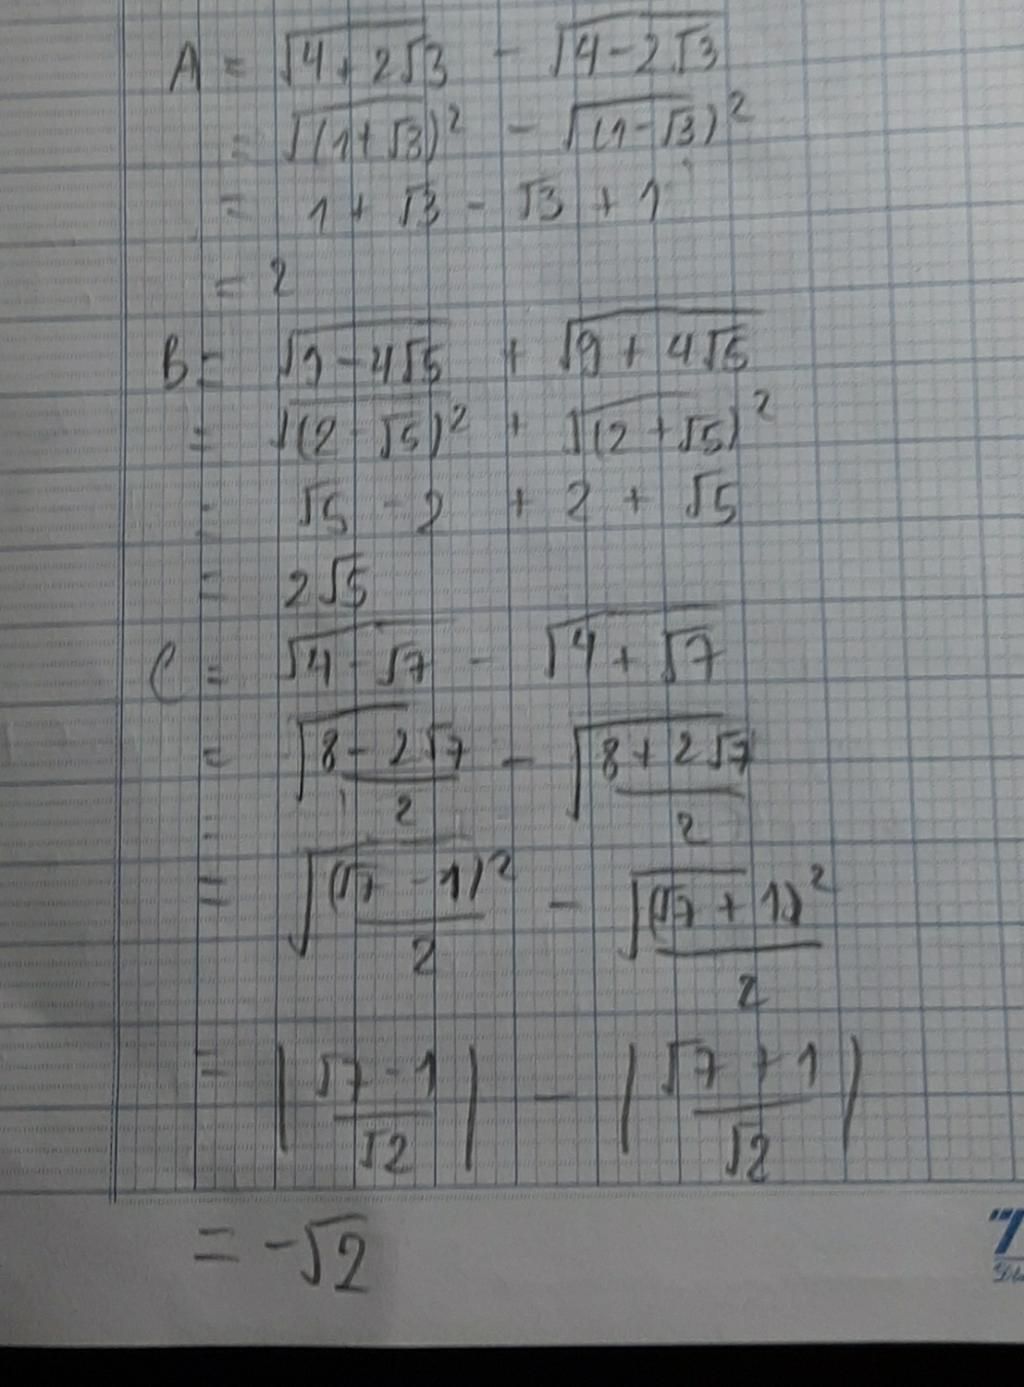 A = √(4+2√3) - √(4-2√3)
= √((1+√3)²) - √((1-√3)²)
= 1 + √3 - √3 + 1
= 2
B = √(9-4√5) + √(9+4√5)
= √((2-√5)²) + √((2+√5)²)
= √5 - 2 + 2 + √5
= 2√5
C = √(4-√7) - √(4+√7)
= √((8-2√7)/2) - √((8+2√7)/2)
=
= √((√7-1)²/2) - √((√7+1)²/2)
= |(√7-1)/√2| - |(√7+1)/√2|
= -√2